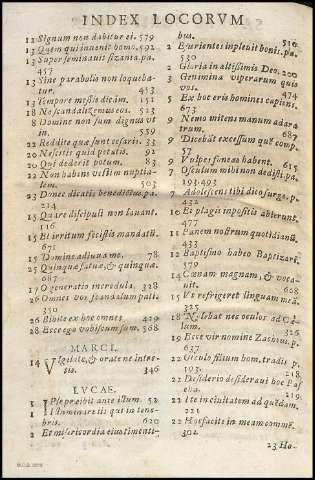 INDEX LOCORVM
12 Signum non dabitur ei. 579
13 Quem qui invenit homo. 592
13 Superseminavit sizania. pa.
457
13 Sine parabolis non loqueba-
tur. 413
13 Tempore messis dicam. 151
18 Ne scandalizemus eos. 523
8 Domine non sum dignus vt
in. 559
22 Reddite quæ sunt cæsari. 33
20 Nescitis quid petatis. 92
20 Qui dederit potum. 83
22 Non habens vestem nuptia-
lem. 503
23 Donec dicatis benedictus. pa.
214
15 Quare discipuli non lauant.
116
15 Et irritum fecistis mandatũ.
671
15 Domine adiuua me. 78
25 Quinque fatuæ, & quinque.
687
17 O generatio incredula. 328
26 Omnes vos scandalum pati.
330
26 Bibite ex hoc omnes. 429
28 Ecce ego vobiscum sum. 568
MARCI.
14 Vigilate, & orate ne intre-
tis. 346
LVCAE.
1 Ipse præibit ante illum. 52
1 Illuminare iis qui in tene-
bris. 620
2 Et misericordia eius timenti-
bus. 516
2 Esurientes inplevit bonis. pa.
530
2 Gloria in altissimis Deo. 200
3 Genimina viperarum quis
vos. 474
5 Ex hoc eris homines capiens.
673
9 Nemo mitens manum ad ara
trum. 687
9 Dicebãt excessum quẽ comp.
9 Vulpes foveas habent. 615
7 Osculum mihi non dedisti. pa
193. 493
7 Adolescens tibi dico surge. p.
432
10 Et plagis impositis abierunt.
477
11 Panem nostrum quotidianũ.
433
12 Baptismo habeo Baptizari.
579
14 Cœnam magnam, & voca-
uit. 608
16 Vt refrigeret linguam meã
325
18 Nolebat nec oculos ad Cæ-
lum. 326
19 Ecce vir nomine Zachæus. p.
637
22 Osculo filium hom. tradis p.
193. 218
22 Desiderio desideraui hoc Pas
cha. 219
22 Ite in ciuitatem ad quẽdam.
221
22 Hoc facite in meam comm.
302
23 Ho-